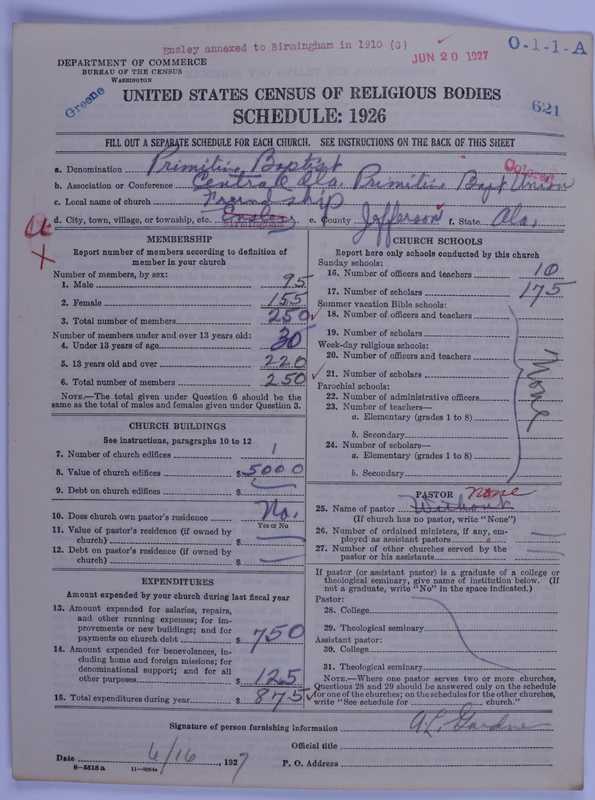 Ensley annexed to Birmingham in 1910 (G)
JUN 20 1927
O-1-1-A
DEPARTMENT OF COMMERCE
BUREAU OF THE CENSUS
WASHINGTON
Greene
621
UNITED STATES CENSUS OF RELIGIOUS BODIES
SCHEDULE: 1926
FILL OUT A SEPARATE SCHEDULE FOR EACH CHURCH. SEE INSTRUCTIONS ON THE BACK OF THIS SHEET
a. Denomination Primitive Baptist
Colored
b. Association or Conference Central Ala. Primitive Bapt Union
c. Local name of church Friendship
d. City, town, village, or township, etc. Ensley Birmingham e. County Jefferson f. State Ala.
MEMBERSHIP
Report number of members according to definition of
member in your church
Number of members, by sex:
1. Male 95
2. Female 155
3. Total number of members 250
Number of members under and over 13 years old:
4. Under 13 years of age 30
5. 13 years old and over 220
6. Total number of members 250
NOTE.—The total given under Question 6 should be the
same as the total of males and females given under Question 3.
CHURCH BUILDINGS
See instructions, paragraphs 10 to 12
7. Number of church edifices 1
8. Value of church edifices $ 5000
9. Debt on church edifices $
10. Does church own pastor's residence No.
Yes or No
11. Value of pastor's residence (if owned by
church) $
12. Debt on pastor's residence (if owned by
church) $
EXPENDITURES
Amount expended by your church during last fiscal year
13. Amount expended for salaries, repairs,
and other running expenses; for im-
provements or new buildings; and for
payments on church debt $ 750
14. Amount expended for benevolences, in-
cluding home and foreign missions; for
denominational support; and for all
other purposes $ 125
15. Total expenditures during year $ 875
CHURCH SCHOOLS
Report here only schools conducted by this church
Sunday schools:
16. Number of officers and teachers 10
17. Number of scholars 175
Summer vacation Bible schools:
18. Number of officers and teachers
19. Number of scholars
Week-day religious schools:
20. Number of officers and teachers
21. Number of scholars
None
Parochial schools:
22. Number of administrative officers
23. Number of teachers—
a. Elementary (grades 1 to 8)
b. Secondary
24. Number of scholars—
a. Elementary (grades 1 to 8)
b. Secondary
PASTOR none
25. Name of pastor Without
(If church has no pastor, write "None")
26. Number of ordained ministers, if any, em-
ployed as assistant pastors
27. Number of other churches served by the
pastor or his assistants
If pastor (or assistant pastor) is a graduate of a college or
theological seminary, give name of institution below. (If
not a graduate, write "No" in the space indicated.)
Pastor:
28. College
29. Theological seminary
Assistant pastor:
30. College
31. Theological seminary
NOTE.—Where one pastor serves two or more churches,
Questions 28 and 29 should be answered only on the schedule
for one of the churches; on the schedules for the other churches,
write "See schedule for church."
Signature of person furnishing information A. L. Gardne
Official title
Date 6/16, 1927 P. O. Address
8—5518 a 11—9054